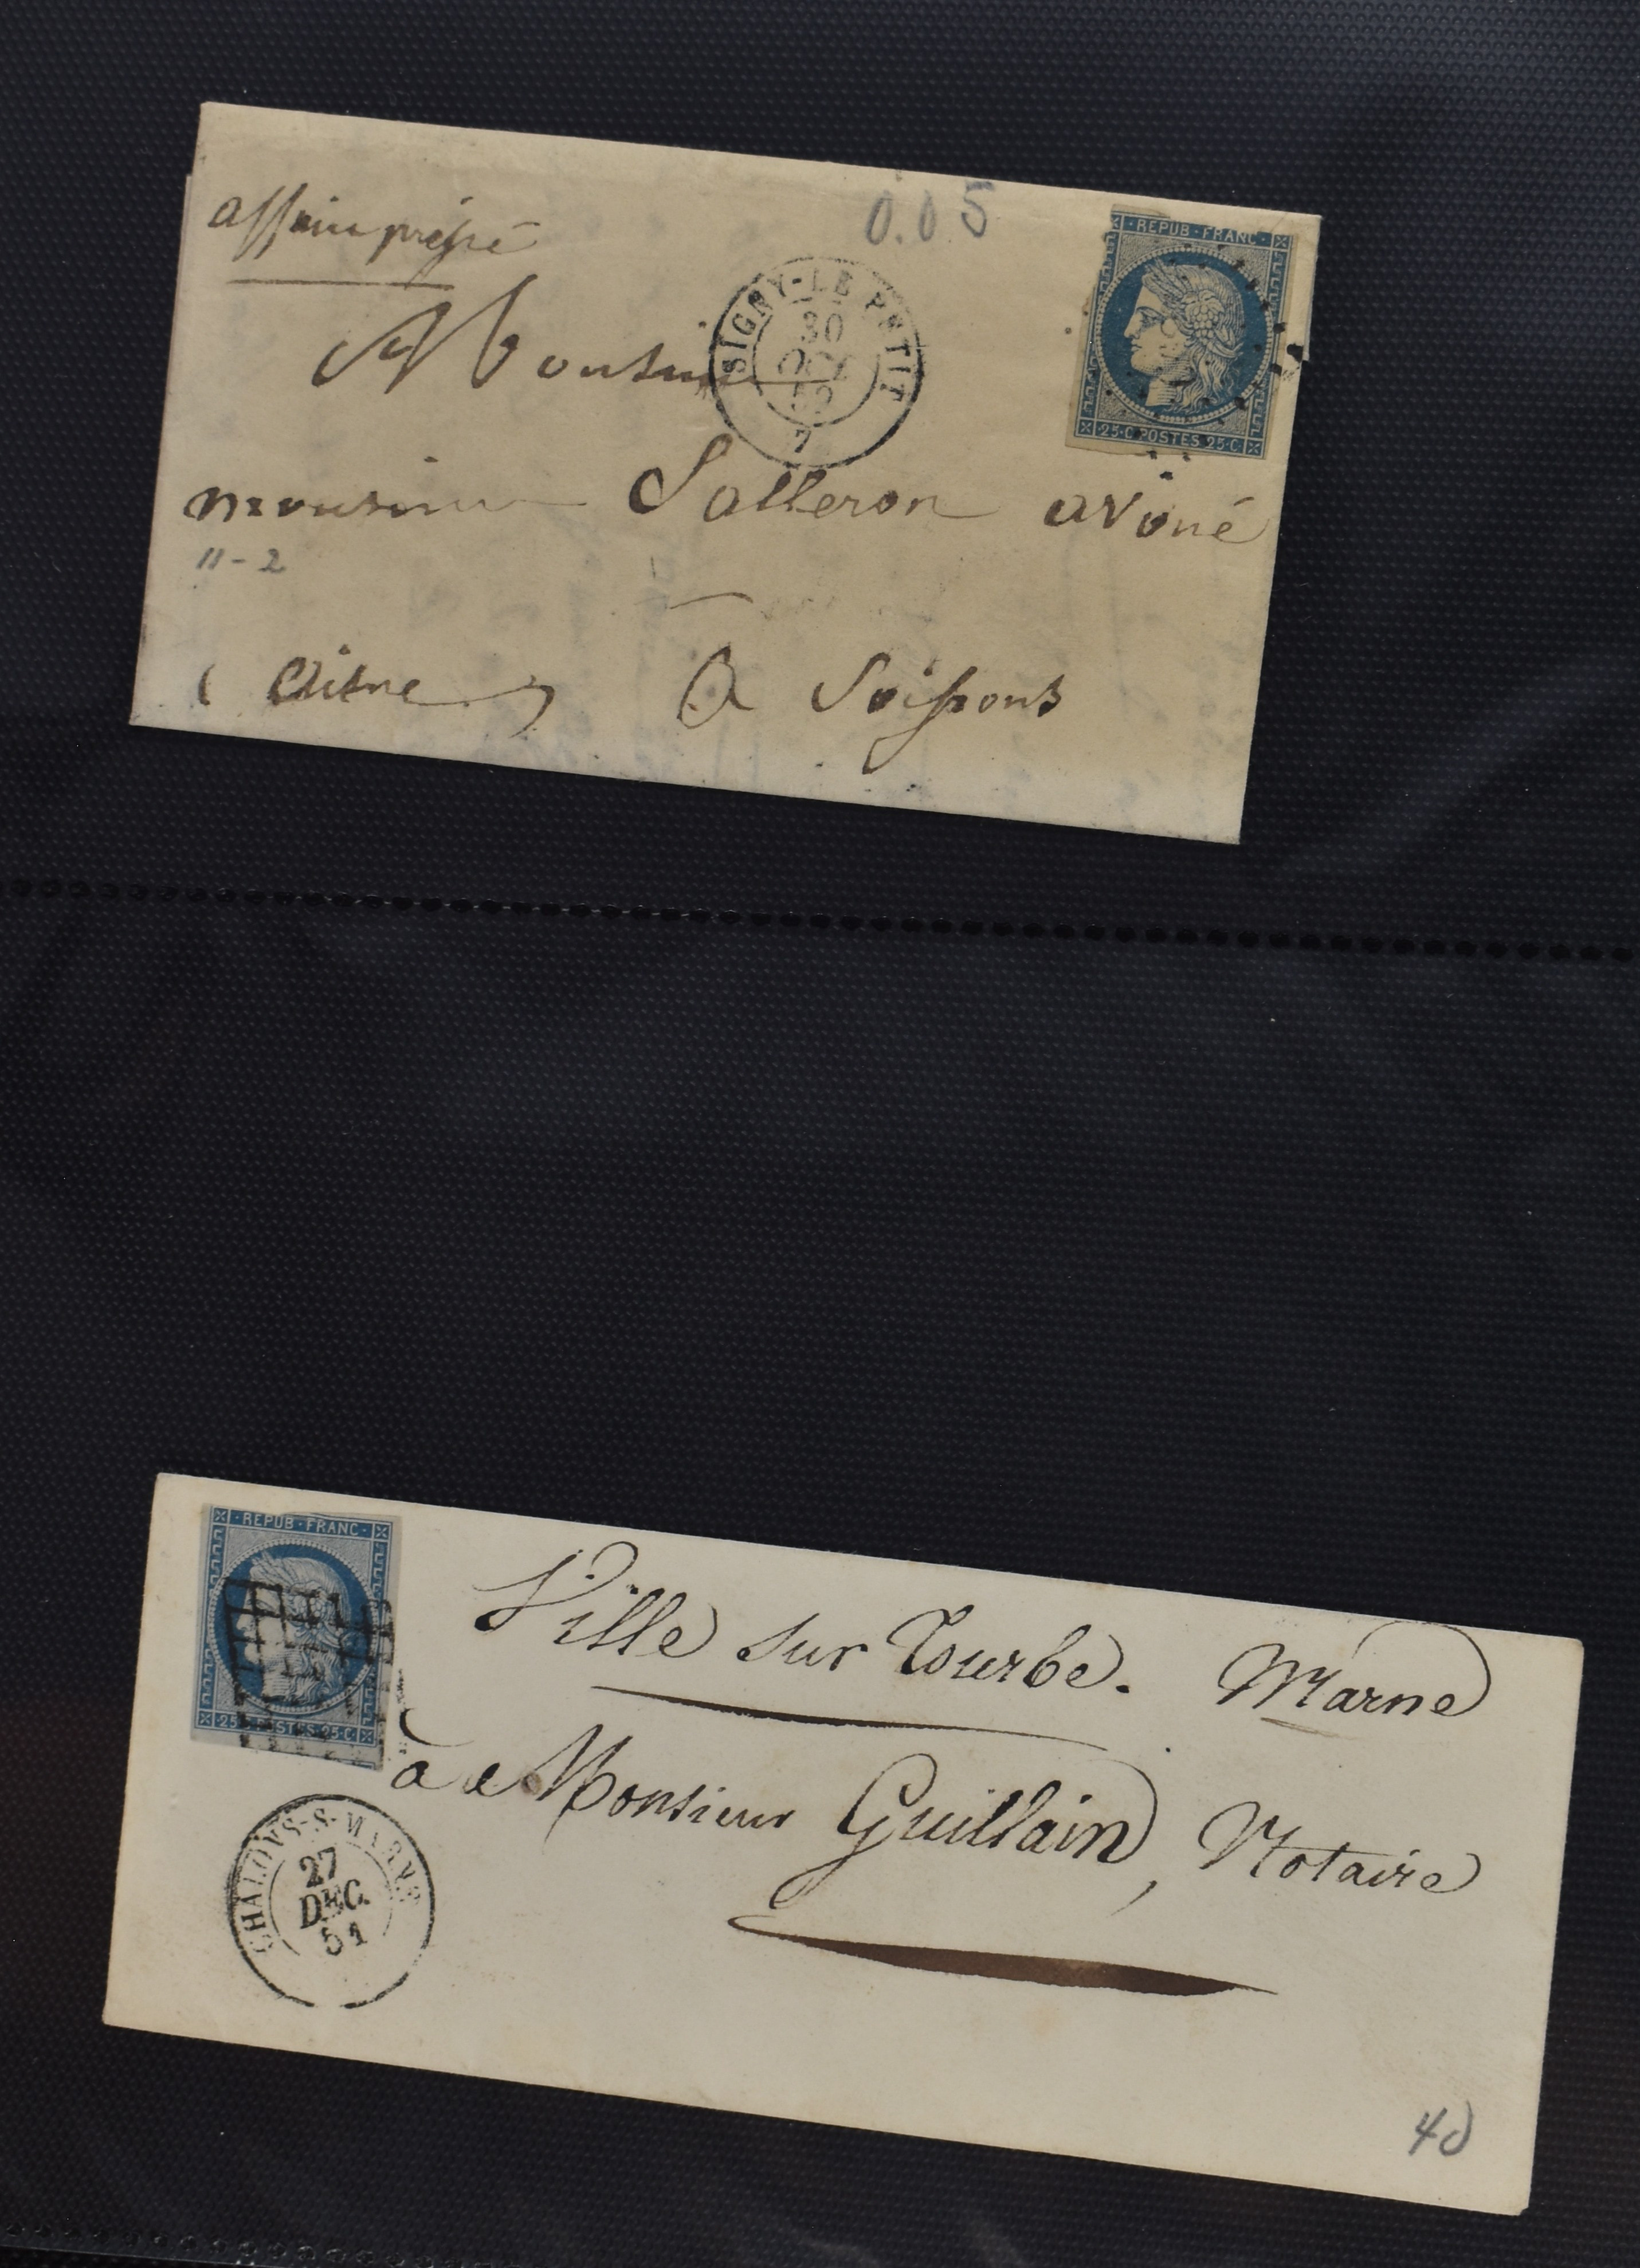 affaire pressé
0.05
REPUB·FRANC
25·C POSTES 25·C
SIGNY-LE-PETIT
30
OCT
52
7
Monsieur
monsieur Salleron avoué
11-2
(aisne) A Soissons
REPUB·FRANC
25·C POSTES 25·C
Ville sur Tourbe. Marne
à Monsieur Guillain, Notaire
CHALONS-S-MARNE
27
DEC.
51
40